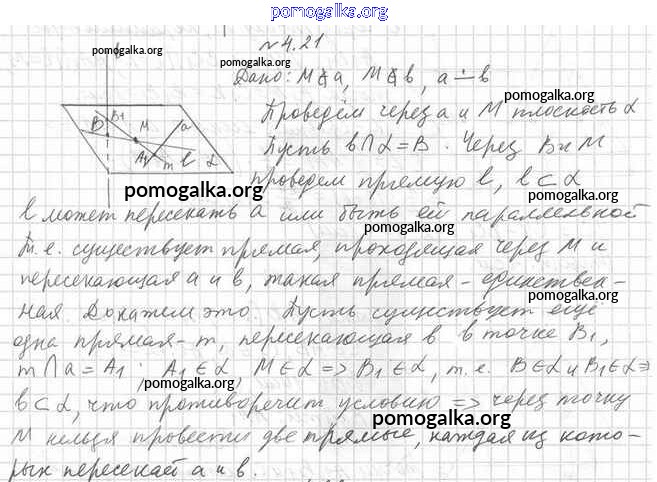 pomogalka.org
№4.21
pomogalka.org
pomogalka.org
Дано: M∉a, M∉b, a∸b
pomogalka.org
Проведём через a и M плоскость α
Пусть b∩α=B. Через B и M
pomogalka.org
проведем прямую l, l⊂α
pomogalka.org
B B₁ M a A₁ m l α
pomogalka.org
l может пересекать a или быть ей параллельной
pomogalka.org
Т.е. существует прямая, проходящая через M и
пересекающая a и b, такая прямая - единствен-
pomogalka.org
ная. Докажем это. Пусть существует ещё
одна прямая - m, пересекающая b в точке B₁,
m∩a=A₁. A₁∈α M∈α => B₁∈α, т.е. B∈α и B₁∈α =>
pomogalka.org
b⊂α, что противоречит условию => через точку
pomogalka.org
M нельзя провести две прямые, каждая из кото-
рых пересекает a и b.